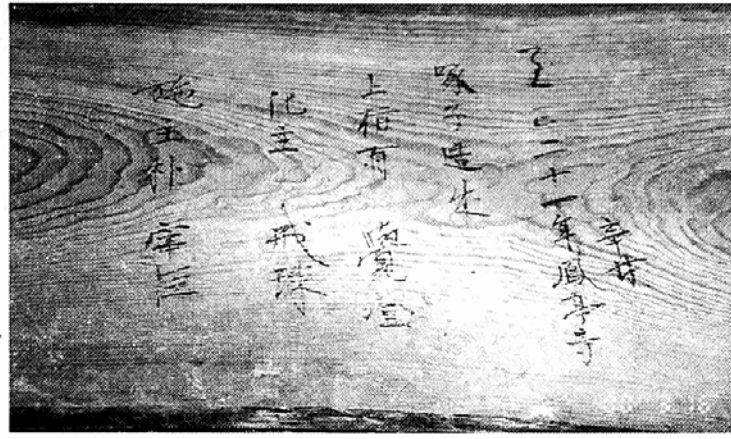 辛丑
至正二十一年鳳亭寺
啄子造成
上有 覺
化主 戒珠
施主朴 宰巨